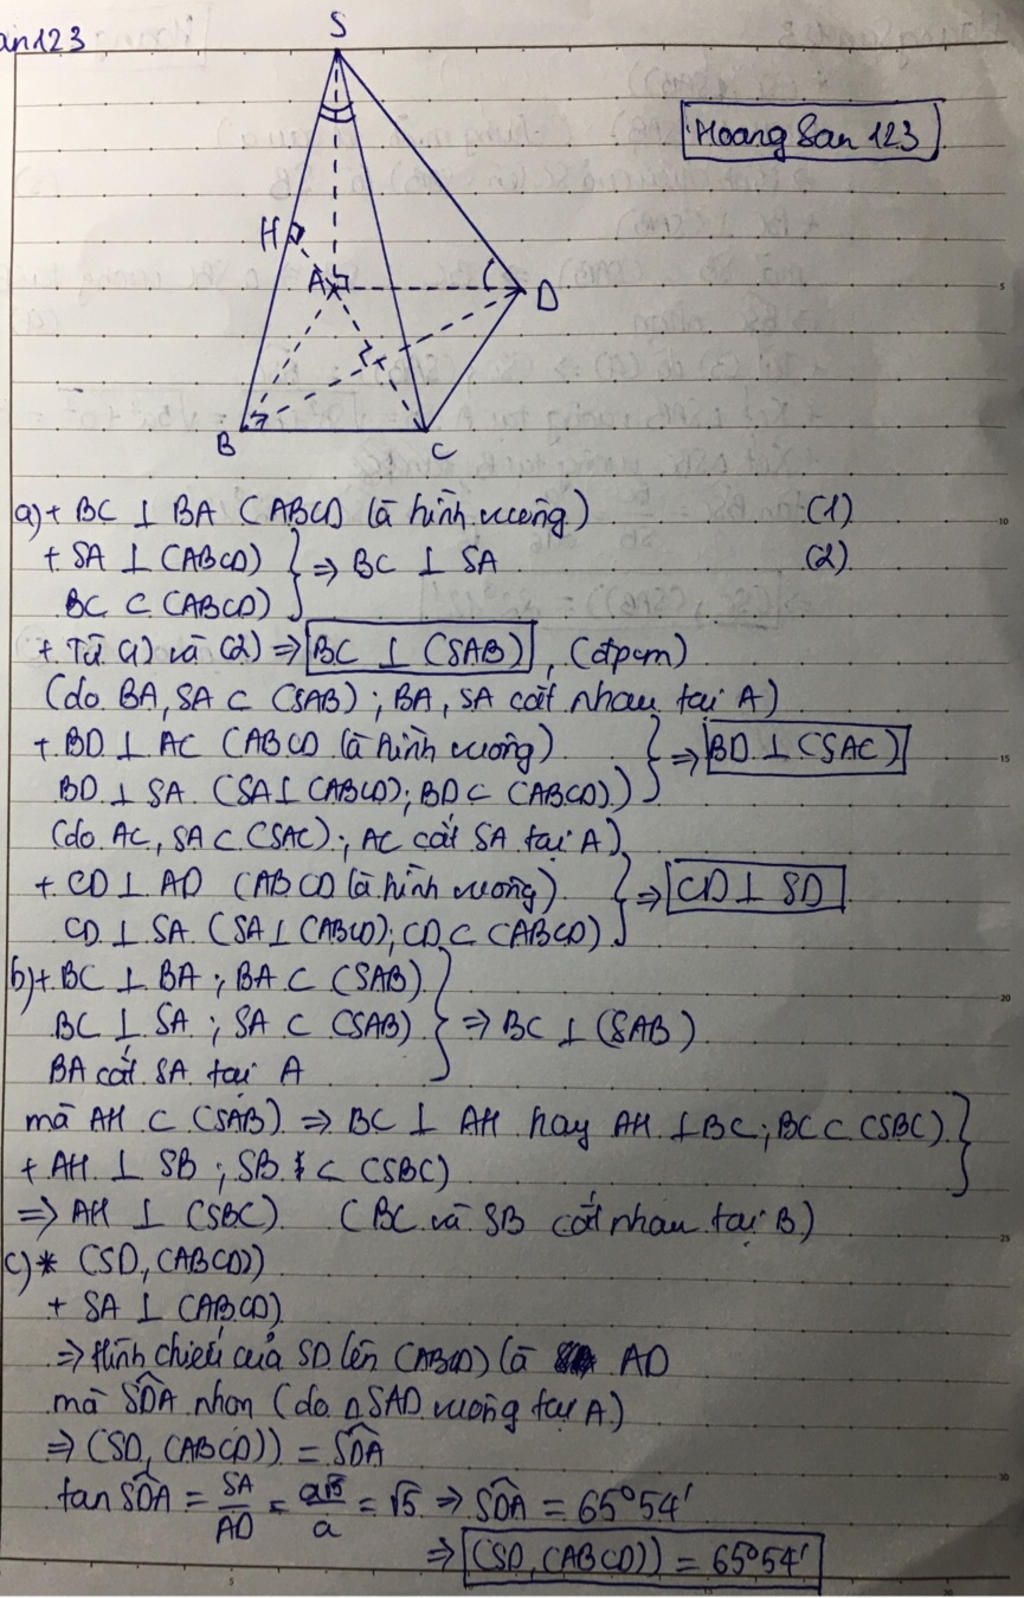 an123
S
Hoang San 123
H
A
D
B
C
a)+ BC ⊥ BA (ABCD là hình vuông) (1)
+ SA ⊥ (ABCD) } ⇒ BC ⊥ SA (2)
BC ⊂ (ABCD)
+ Từ (1) và (2) ⇒ BC ⊥ (SAB), (đpcm)
(do BA, SA ⊂ (SAB); BA, SA cắt nhau tại A)
+ BD ⊥ AC (ABCD là hình vuông) } ⇒ BD ⊥ (SAC)
BD ⊥ SA (SA ⊥ (ABCD); BD ⊂ (ABCD))
(do AC, SA ⊂ (SAC); AC cắt SA tại A)
+ CD ⊥ AD (ABCD là hình vuông) } ⇒ CD ⊥ SD
CD ⊥ SA (SA ⊥ (ABCD); CD ⊂ (ABCD)
b)+ BC ⊥ BA; BA ⊂ (SAB)
BC ⊥ SA; SA ⊂ (SAB) } ⇒ BC ⊥ (SAB)
BA cắt SA tại A
mà AH ⊂ (SAB) ⇒ BC ⊥ AH hay AH ⊥ BC; BC ⊂ (SBC) }
+ AH ⊥ SB; SB ⊂ (SBC)
⇒ AH ⊥ (SBC) (BC và SB cắt nhau tại B)
c)* (SD, (ABCD))
+ SA ⊥ (ABCD)
⇒ Hình chiếu của SD lên (ABCD) là AD
mà SDA nhọn (do △SAD vuông tại A)
⇒ (SD, (ABCD)) = SDA
tan SDA = SA/AD = a√5/a = √5 ⇒ SDA = 65°54'
⇒ (SD, (ABCD)) = 65°54'